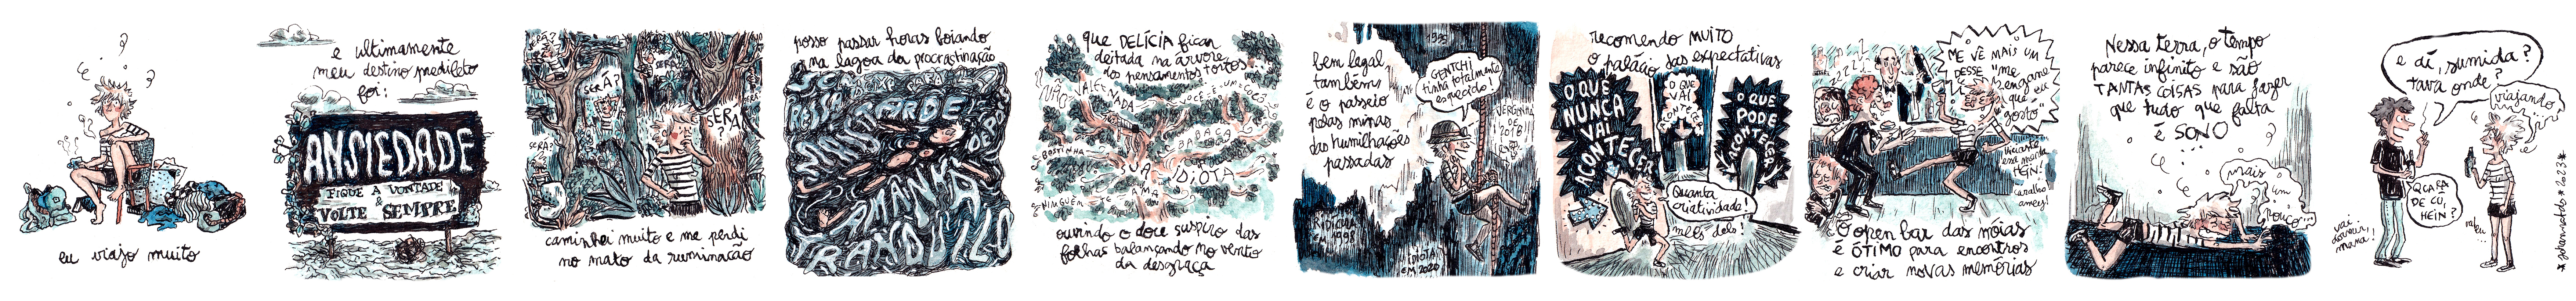 eu viajo muito
e ultimamente
meu destino predileto
foi:
ANSIEDADE
FIQUE A VONTADE
&
VOLTE SEMPRE
SERÁ?
SERÁ?
SERÁ
?
caminhei muito e me perdi
no mato da ruminação
posso passar horas boiando
na lagoa da procrastinação
MAIS TARDE
DEPOIS
AMANHÃ
TRANQUILO
que DELÍCIA ficar
deitada na árvore
dos pensamentos tortos
NÃO VALE NADA
VOCÊ É UM COCÔ
BOSTINHA
IDIOTA
NINGUÉM
TE
AMA
ouvindo o doce suspiro das
folhas balançando no vento
da desgraça
bem legal
também
é o passeio
pelas minas
das humilhações
passadas
1995
GENTCHI
tinha totalmente
esquecido!
VERGONHA
DE
2018
RIDÍCULA
EM 1998
IDIOTA
EM 2020
recomendo MUITO
o palácio das expectativas
O QUE
NUNCA
VAI
ACONTECER
O QUE
VAI
ACONTECER
O QUE
PODE
ACONTECER
Quanta
criatividade!
meus deus!
ME VÊ MAIS UM
DESSE "me
engane
que eu
gosto"
viciante
essa merda
HEIN!
caralho
amey!
O open bar das nóias
é ÓTIMO para encontros
e criar novas memórias
Nessa terra, o tempo
parece infinito e são
TANTAS COISAS para fazer
que tudo que falta
é SONO
mais
um
pouco...
e aí, sumida?
tava onde?
viajando
QCARA
DE CÚ,
HEIN?
vai
dormir,
mana!
2023